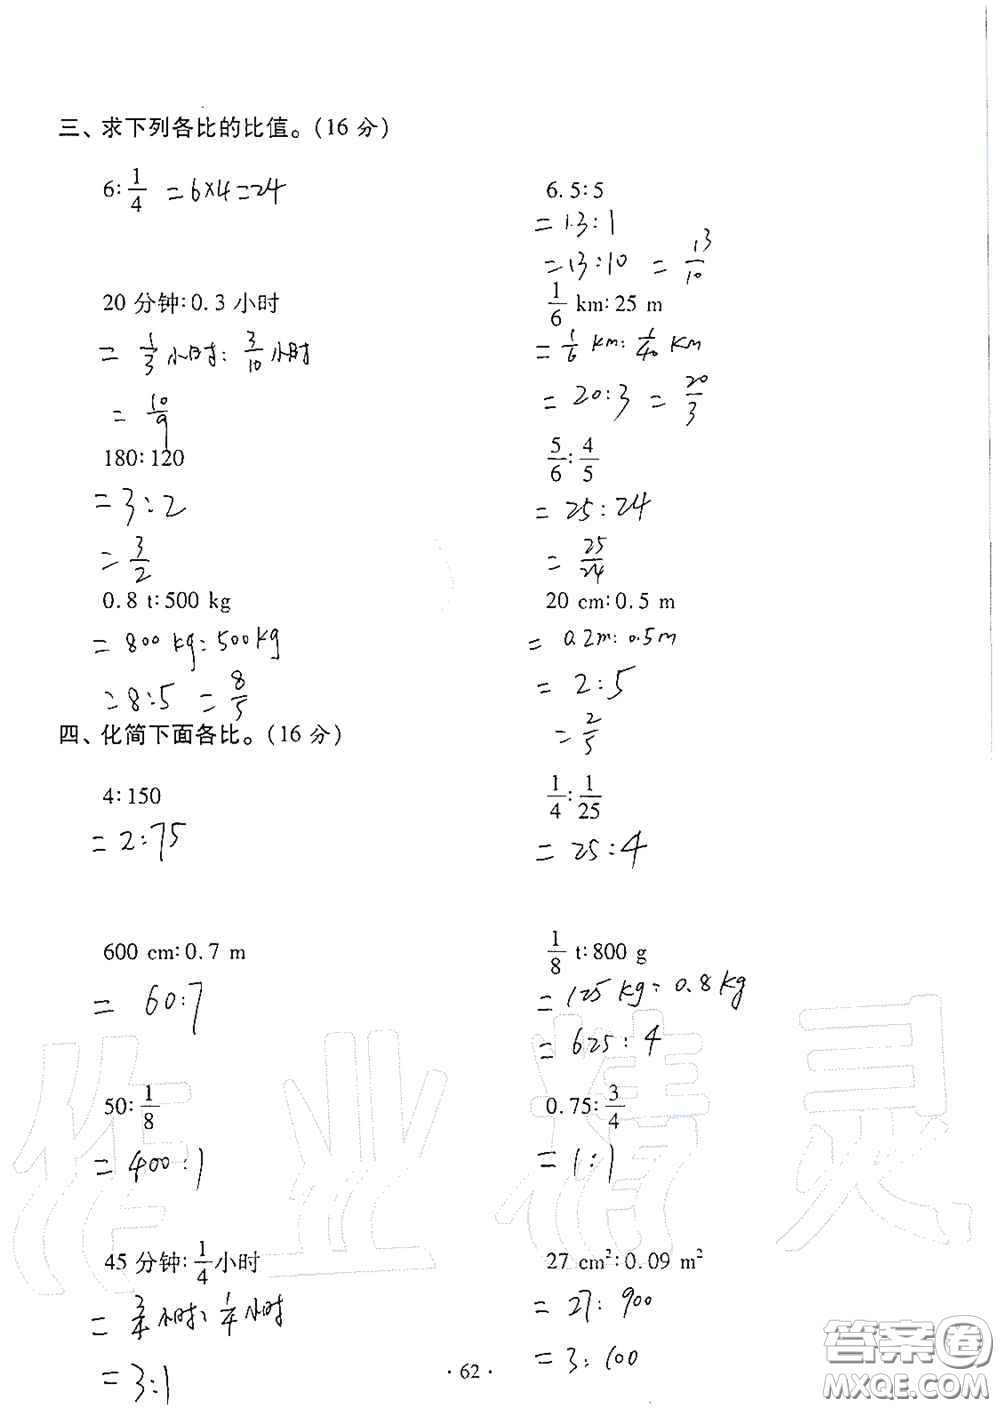 三、求下列各比的比值。(16 分)
6:1/4 =6×4=24
6.5:5
=1.3:1
=13:10 =13/10
20 分钟:0.3 小时
=1/3小时:3/10小时
=10/9
1/6 km:25 m
=1/6 km:1/40 km
=20:3 =20/3
180:120
=3:2
=3/2
5/6:4/5
=25:24
=25/24
0.8 t:500 kg
=800kg:500kg
=8:5 =8/5
20 cm:0.5 m
=0.2m:0.5m
=2:5
=2/5
四、化简下面各比。(16 分)
4:150
=2:75
1/4:1/25
=25:4
600 cm:0.7 m
=60:7
1/8 t:800 g
=125kg:0.8kg
=625:4
50:1/8
=400:1
0.75:3/4
=1:1
45 分钟:1/4小时
=3/4小时:1/4小时
=3:1
27 cm²:0.09 m²
=27:900
=3:100
·62·
作业精灵
答案圈
MXQE.COM